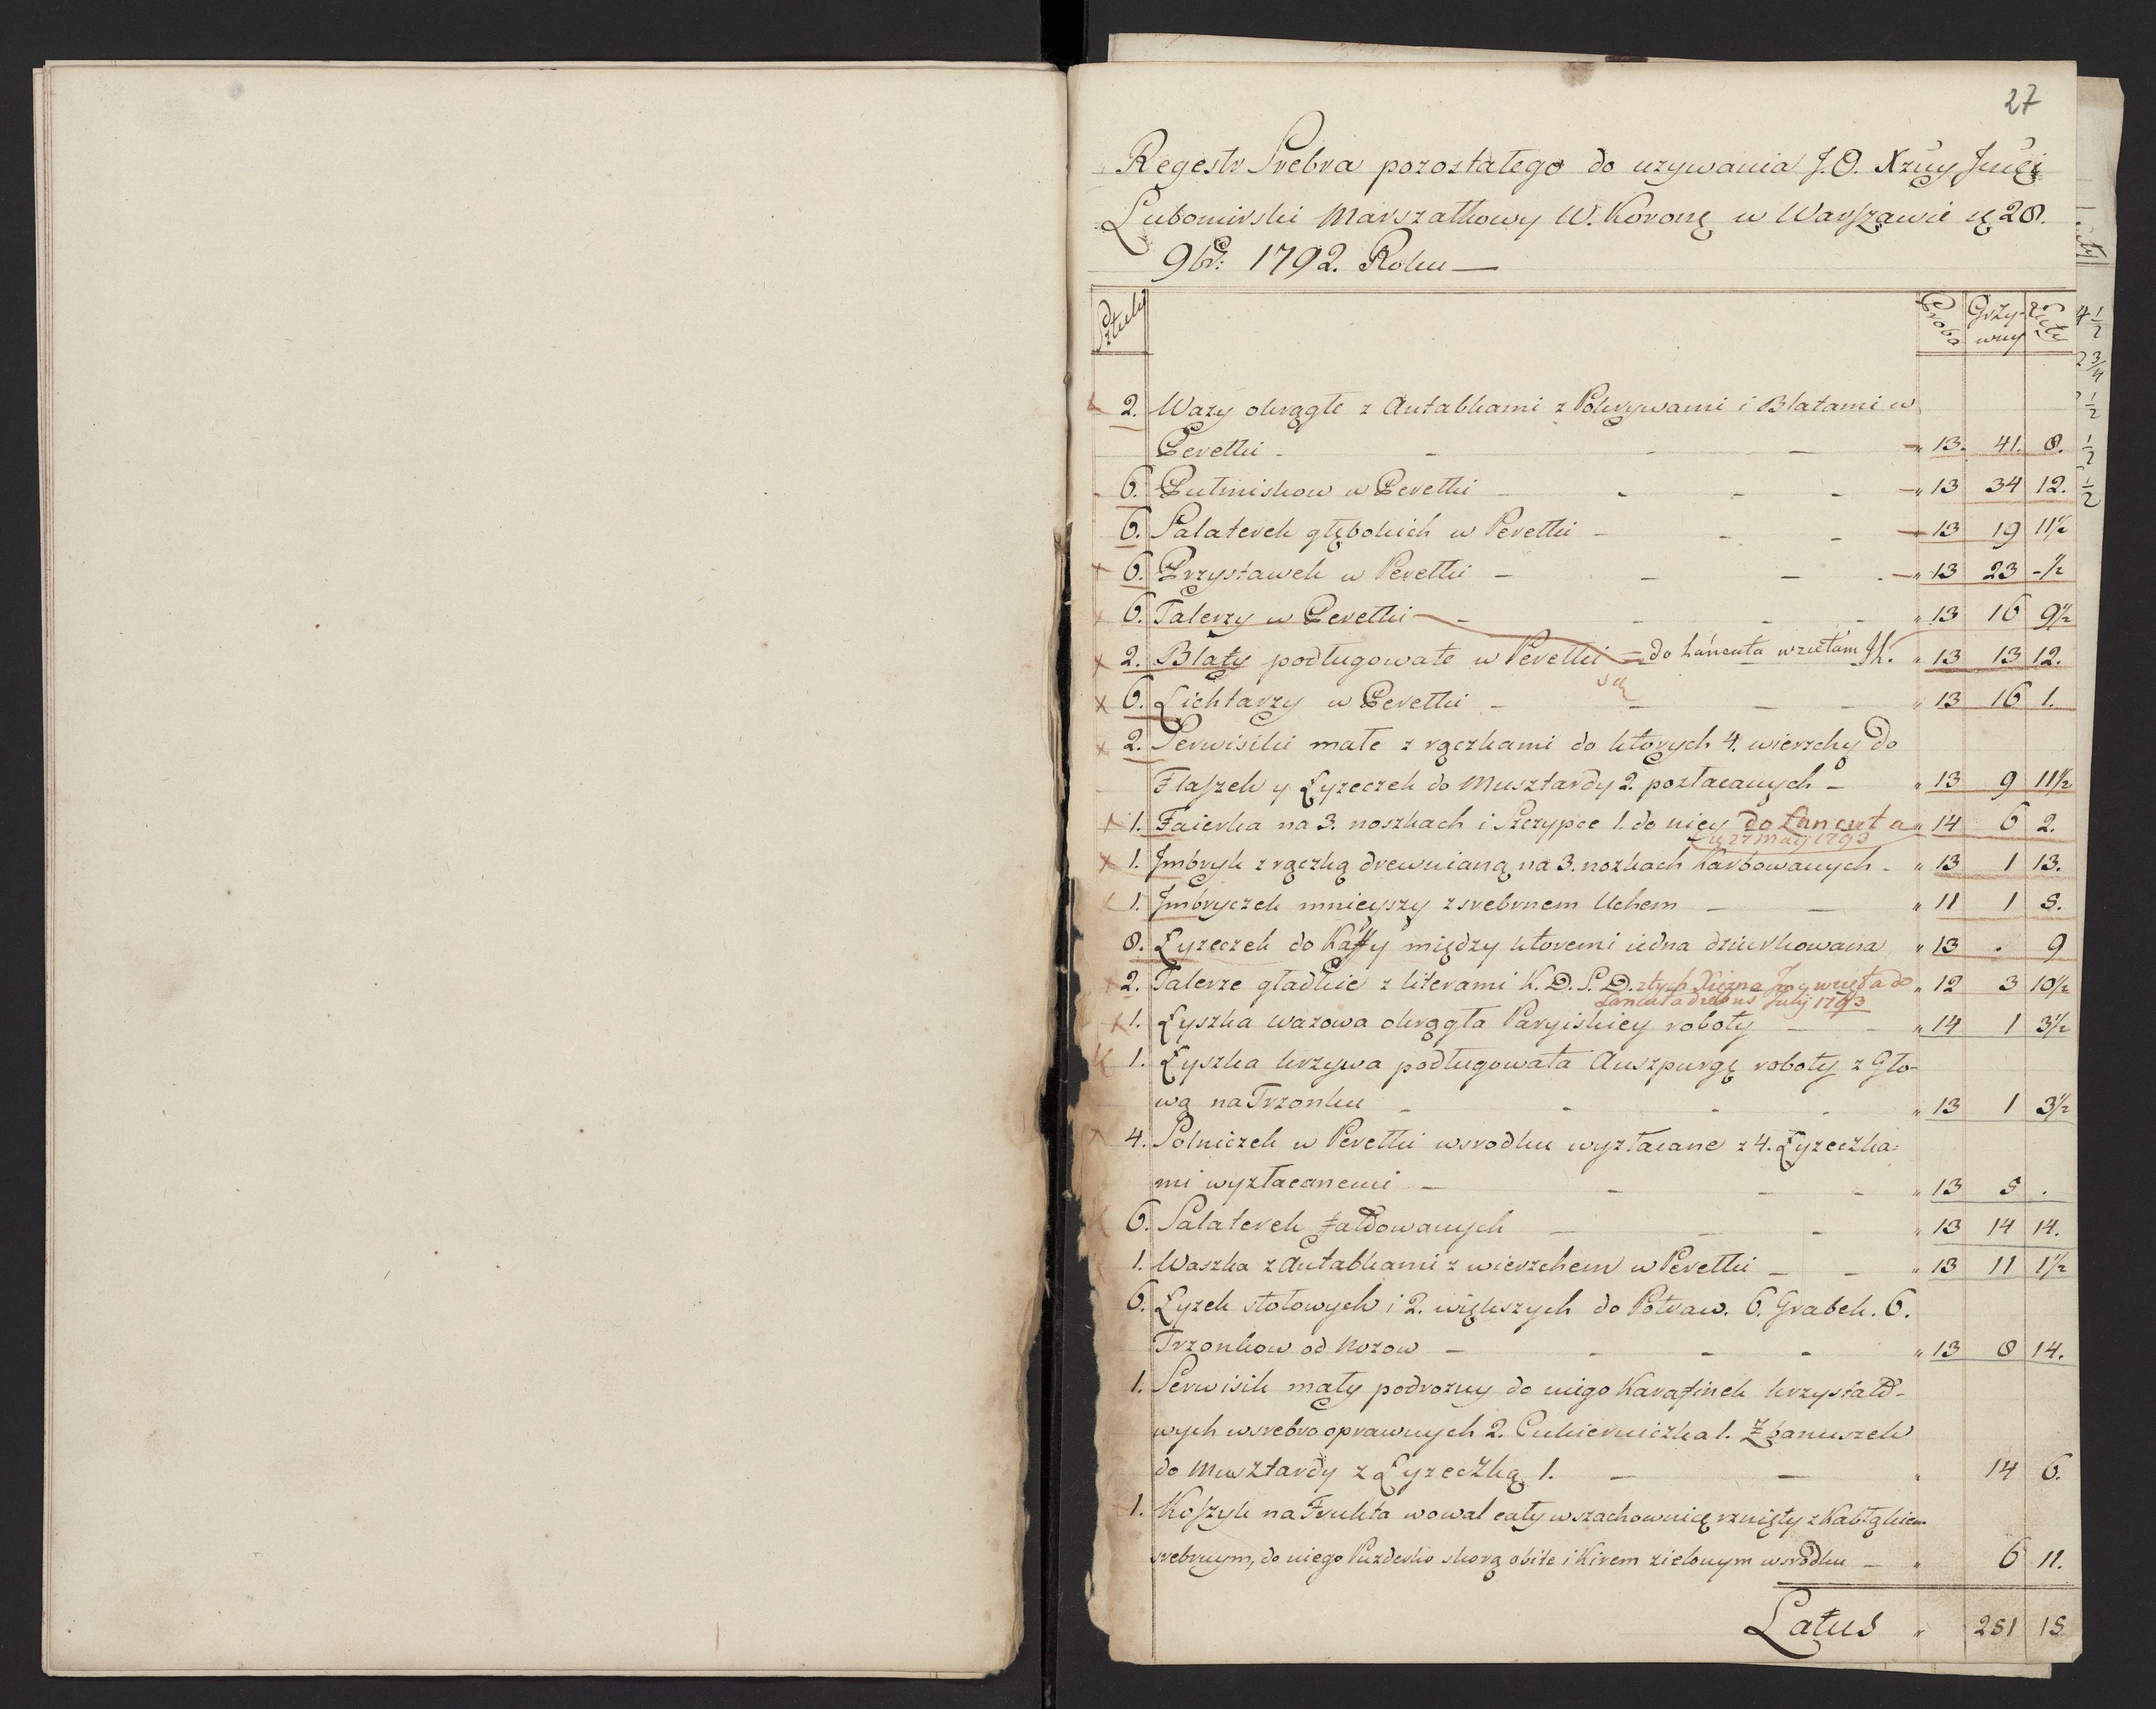 27
Regestr Srebra pozostałego do uzywania J.O. Xzny Jmci
Lubomirski Marszałkowy W. Koronę w Warszawie 28.
9br: 1792. Roku —
Sztuki Proba Grzywny Łuty
2. Wazy okrągłe z Antabkami z Pokrywami i Blatami w
Perełki - 13. 41. 8.
6. Pułmiskow w Perełki 13 34 12.
6. Salaterek głębokich w Perełki - 13 19 11½
6. Przystawek w Perełki - 13 23 -½
6. Talerzy w Perełki 13 16 9½
2. Blaty podługowate w Perełki = do Łańcuta wziełam 13 13 12.
6. Lichtarzy w Perełki - 13 16 1.
2. Serwisiki małe z rączkami do ktorych 4. wierzchy do
Flaszek y Łyzeczek do Musztardy 2. pozłacanych - 13 9 11½
1. Faierka na 3. noszkach i Szczypce 1. do niey do Łancuta 14 6 2.
27 Maij 1793
1. Jmbryk z rączką drewnianą na 3. nozkach karbowanych - 13 1 13.
1. Jmbryczek mnieyszy z srebrnem Uchem 11 1 5.
8. Łyzeczek do Kaffy między ktoremi iedna dziurkowana 13 . 9
2. Talerze gładkie z literami K.D.S.D. z tych Xięzna Jmy wzięła do 12 3 10½
Łancuta Julij 1793
1. Łyszka wazowa okrągła Paryiskiey roboty 14 1 3½
1. Łyszka krzywa podługowata Auszpurgę roboty z Gło-
wą na Trzonku - 13 1 3½
4. Solniczek w Perełki wsrodku wyzłacane z 4. Łyzeczka-
mi wyzłacanemi - 13 5 .
6. Salaterek fałdowanych 13 14 14.
1. Waszka z Antabkami z wierzchem w Perełki 13 11 1½
6. Łyzek stołowych i 2. większych do Potraw. 6. Grabek. 6.
Trzonkow od Nozow - 13 8 14.
1. Serwisik mały podrozny do niego Karafinek krzyształo-
wych w srebro oprawnych 2. Cukierniczka 1. Zbanuszek
do Musztardy z Łyzeczką 1. 14 6.
1. Koszyk na Frukta w owal cały w szachownicę rznięty z Kabłąkiem
srebrnym, do niego Puzderko skorą obite i Kirem zielonym wsrodku - 6 11.
Latus 281 15